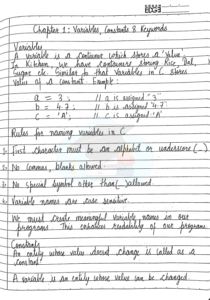 Chapter 1: Variables, Constants & Keywords
Variables
A variable is a container which stores a 'value'.
In kitchen, we have containers storing Rice, Dal,
Sugar etc. Similar to that Variables in C stores
value of a constant. Example:
a = 3 ; // a is assigned "3"
b = 4.7 ; // b is assigned "4.7"
c = 'A' ; // c is assigned 'A'
Rules for naming variables in C
1. First character must be an alphabet or underscore (_)
2. No commas, blanks allowed.
3. No special symbol other than (_) allowed
4. Variable names are case sensitive.
We must create meaningful variable names in our
programs. This enhances readability of our programs.
Constants
An entity whose value doesnt change is called as a
constant.
A variable is an entity whose value can be changed.